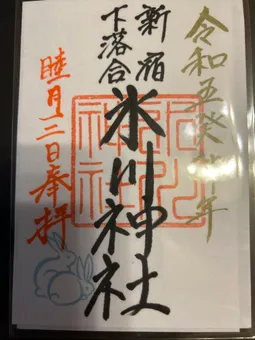 令和五癸卯年
新宿
下落合
氷川神社
睦月二日奉拝
氷川
神社